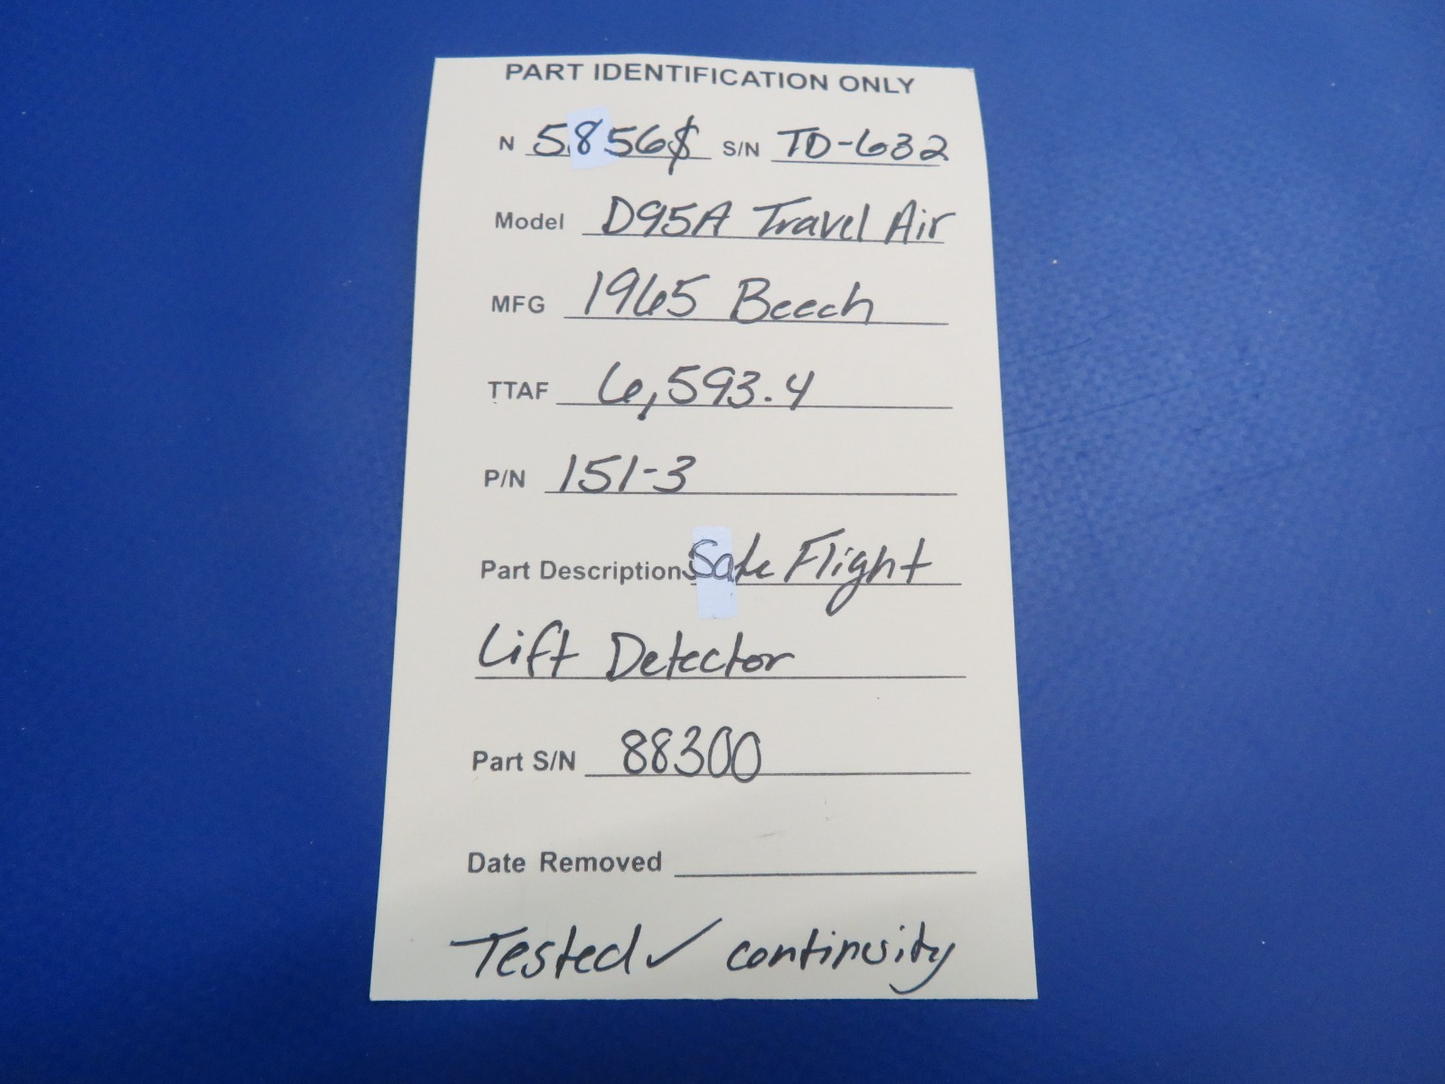 PART IDENTIFICATION ONLY
N 5856$ S/N TD-632
Model D95A Travel Air
MFG 1965 Beech
TTAF 6,593.4
P/N 151-3
Part Description Safe Flight
Lift Detector
Part S/N 88300
Date Removed
Tested ✓ continuity